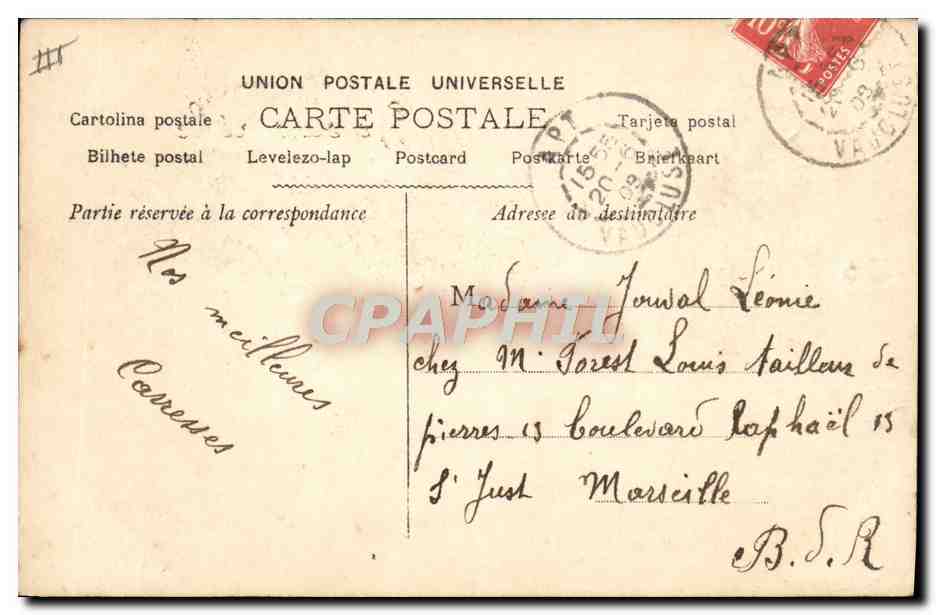 UNION POSTALE UNIVERSELLE
CARTE POSTALE
Cartolina postale
Tarjeta postal
Bilhete postal Levelezo-lap Postcard Postkarte Briefkaart
Partie réservée à la correspondance
Adresee du destinataire
10c
POSTES
VAUCLUSE
APT
15 20 08
VAUCLUSE
Nos
meilleures
Carresses
Madame Jouval Léonie
chez Mr Forest Louis tailleur de
pierres 13 Boulevard Raphaël 13
St Just Marseille
B. d. R
CPAPHIL